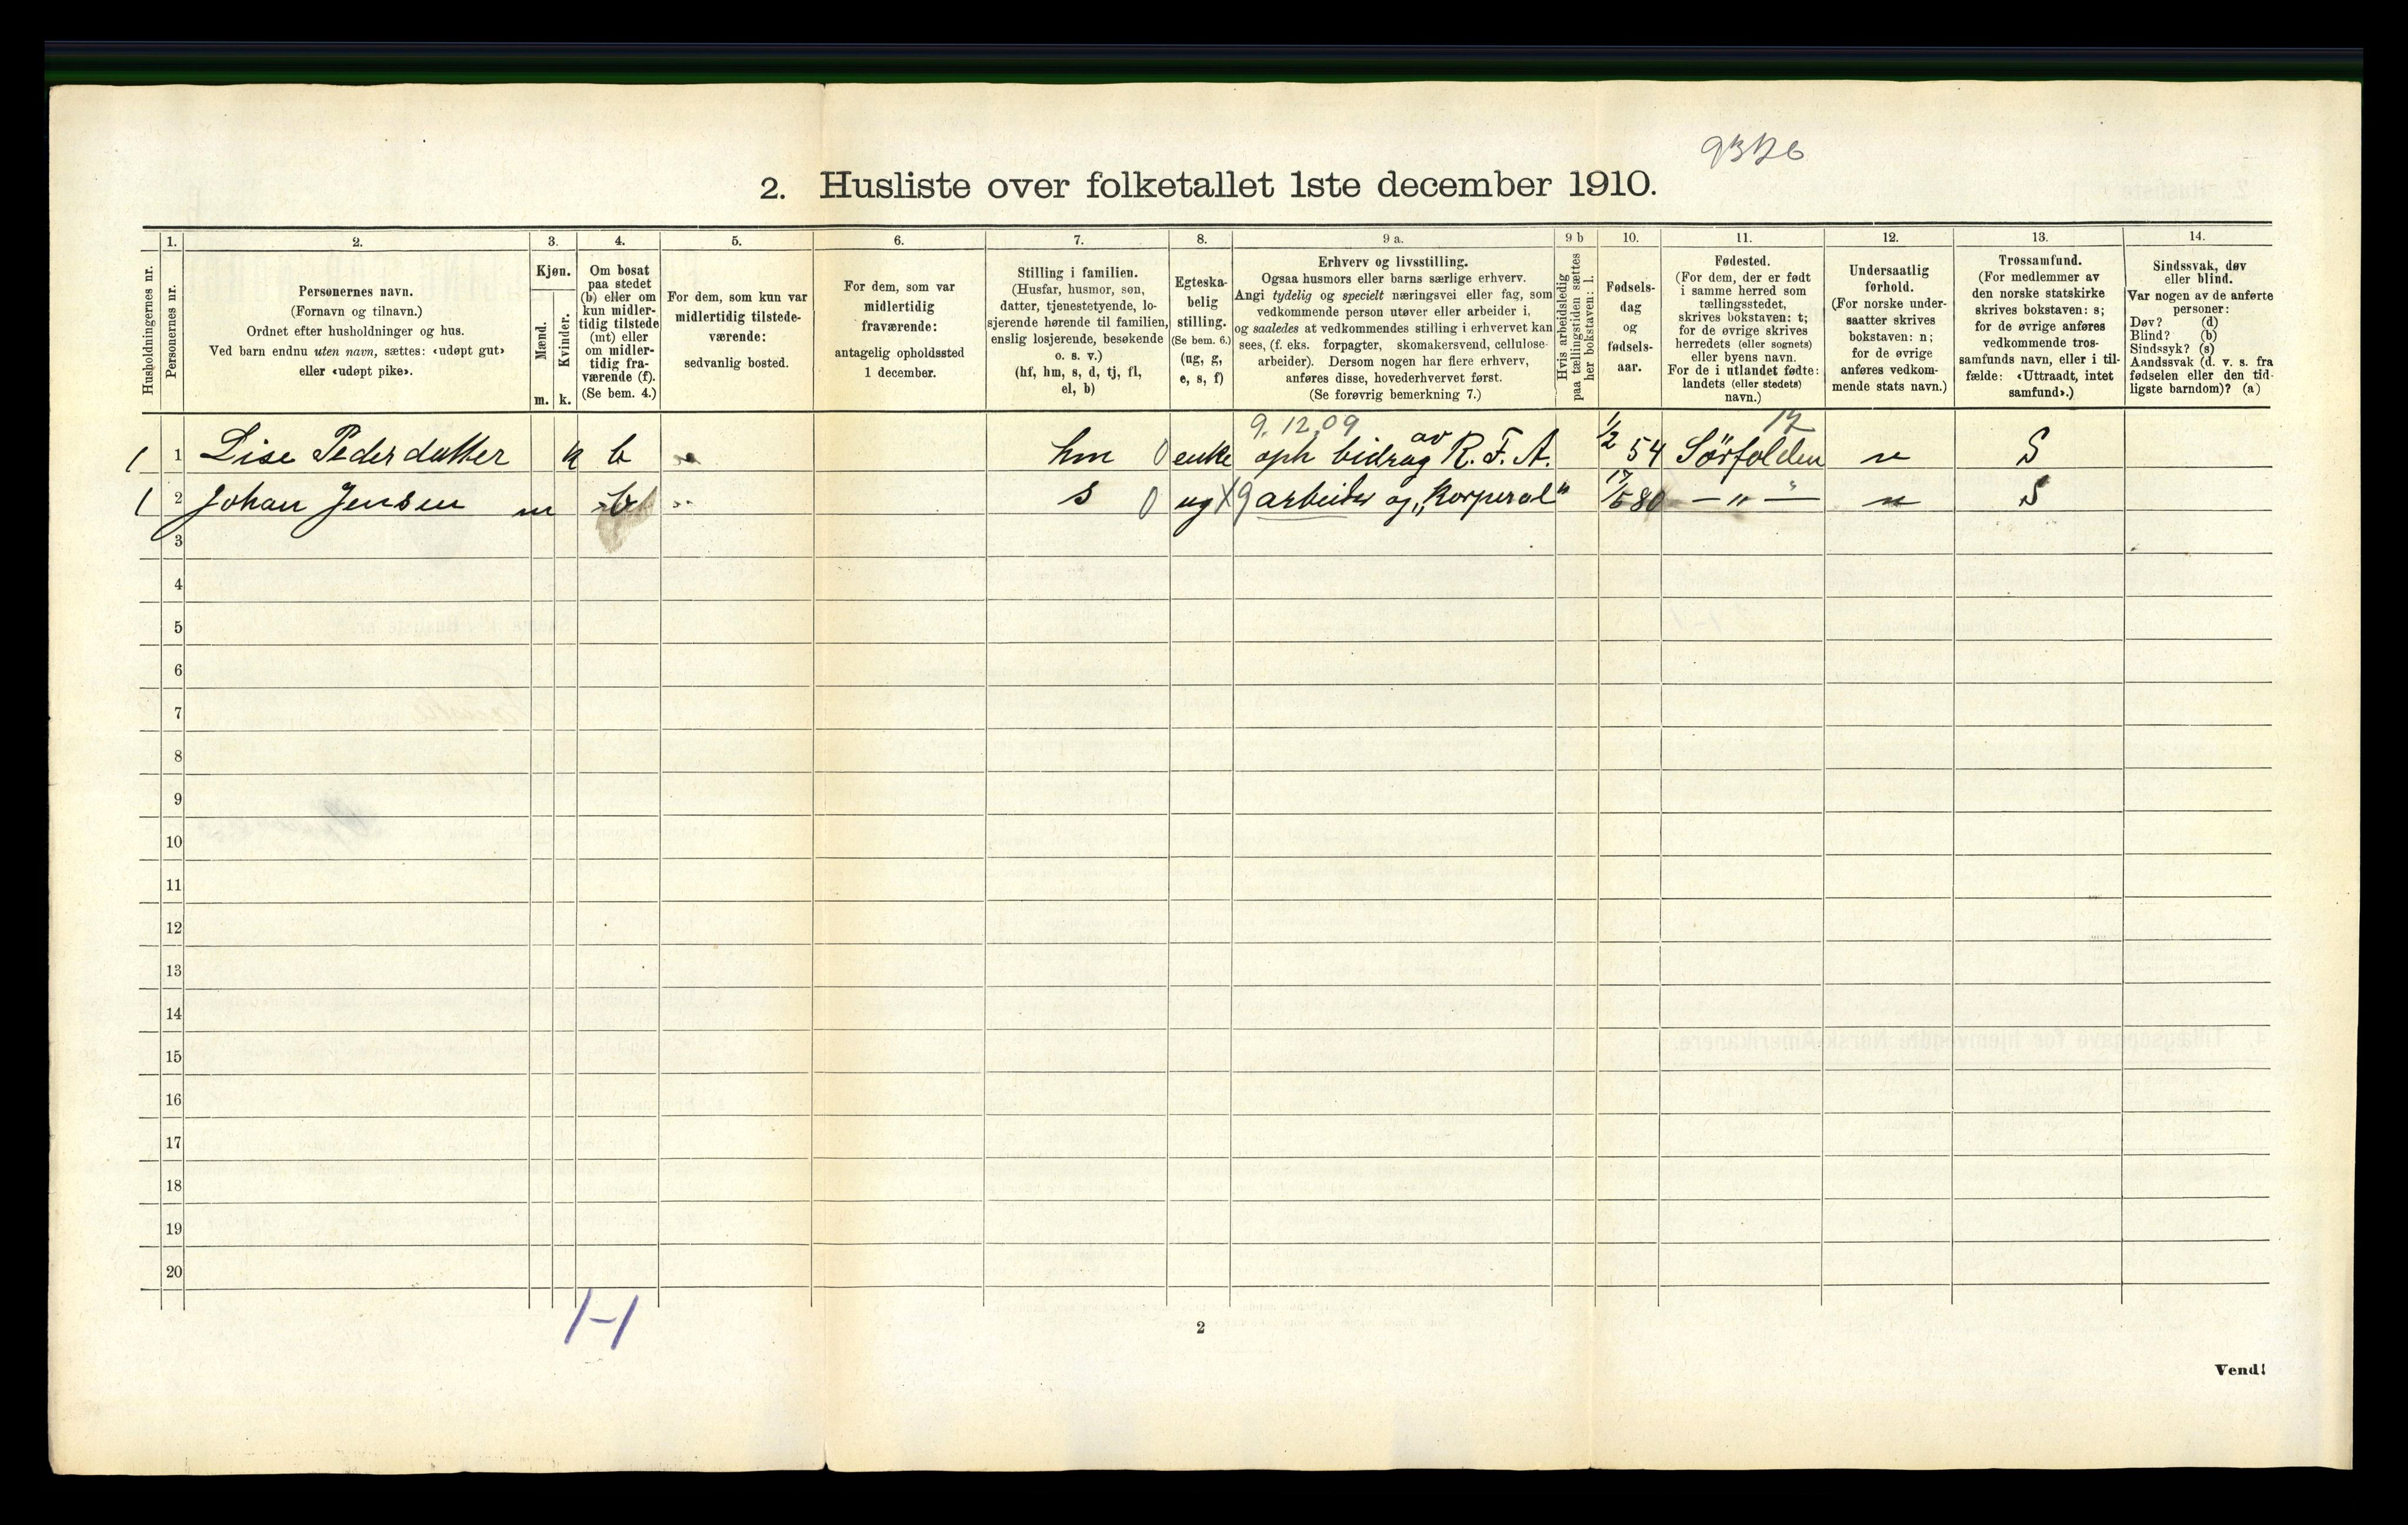 2. Husliste over folketallet 1ste december 1910.
Husholdningernes nr.
1.
Personernes nr.
2.
Personernes navn.
(Fornavn og tilnavn.)
Ordnet efter husholdninger og hus.
Ved barn endnu uten navn, sættes: «udøpt gut»
eller «udøpt pike».
3.
Kjøn.
Mænd.
Kvinder.
m. k.
4.
Om bosat
paa stedet
(b) eller om
kun midler-
tidig tilstede
(mt) eller
om midler-
tidig fra-
værende (f).
(Se bem. 4.)
5.
For dem, som kun var
midlertidig tilstede-
værende:
sedvanlig bosted.
6.
For dem, som var
midlertidig
fraværende:
antagelig opholdssted
1 december.
7.
Stilling i familien.
(Husfar, husmor, søn,
datter, tjenestetyende, lo-
sjerende hørende til familien,
enslig losjerende, besøkende
o. s. v.)
(hf, hm, s, d, tj, fl,
el, b)
8.
Egteska-
belig
stilling.
(Se bem. 6.)
(ug, g,
e, s, f)
9 a.
Erhverv og livsstilling.
Ogsaa husmors eller barns særlige erhverv.
Angi tydelig og specielt næringsvei eller fag, som
vedkommende person utøver eller arbeider i,
og saaledes at vedkommendes stilling i erhvervet kan
sees, (f. eks. forpagter, skomakersvend, cellulose-
arbeider). Dersom nogen har flere erhverv,
anføres disse, hovederhvervet først.
(Se forøvrig bemerkning 7.)
9 b
Hvis arbeidsledig
paa tællingstiden sættes
her bokstaven: l.
10.
Fødsels-
dag
og
fødsels-
aar.
11.
Fødested.
(For dem, der er født
i samme herred som
tællingsstedet,
skrives bokstaven: t;
for de øvrige skrives
herredets (eller sognets)
eller byens navn.
For de i utlandet fødte:
landets (eller stedets)
navn.)
12.
Undersaatlig
forhold.
(For norske under-
saatter skrives
bokstaven: n;
for de øvrige
anføres vedkom-
mende stats navn.)
13.
Trossamfund.
(For medlemmer av
den norske statskirke
skrives bokstaven: s;
for de øvrige anføres
vedkommende tros-
samfunds navn, eller i til-
fælde: «Uttraadt, intet
samfund».)
14.
Sindssvak, døv
eller blind.
Var nogen av de anførte
personer:
Døv? (d)
Blind? (b)
Sindssyk? (s)
Aandssvak (d. v. s. fra
fødselen eller den tid-
ligste barndom)? (a)
9.12.09
1 1 Lise Pedersdatter k b hm 0 enke oph bidrag av R. F. A. 1/2 54 Sörfolden n S
1 2 Johan Jensen m b s 0 ug X 9 arbeider og „Korperal" 80 — „ — n S
3
4
5
6
7
8
9
10
11
12
13
14
15
16
17
18
19
20
1-1
2
Vend!